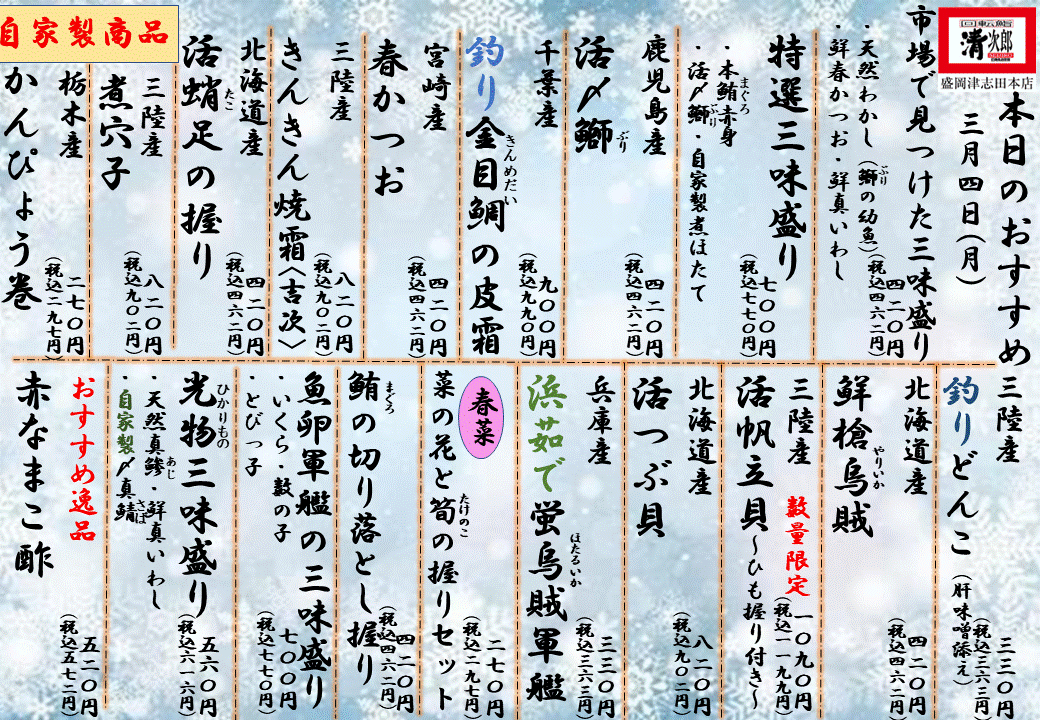 回転鮨
清次郎
盛岡津志田本店
本日のおすすめ
三月四日(月)
市場で見つけた三味盛り
・天然わかし(鰤の幼魚)
ぶり
・鮮春かつお・鮮真いわし
四二〇円
(税込四六二円)
特選三味盛り
・本鮪赤身
まぐろ
・活〆鰤・自家製煮ほたて
ぶり
七〇〇円
(税込七七〇円)
鹿児島産
活〆鰤
ぶり
四二〇円
(税込四六二円)
千葉産
釣り金目鯛の皮霜
きんめだい
九〇〇円
(税込九九〇円)
宮崎産
春かつお
四二〇円
(税込四六二円)
三陸産
きんきん焼霜〈吉次〉
八二〇円
(税込九〇二円)
北海道産
活蛸足の握り
たこ
四二〇円
(税込四六二円)
三陸産
煮穴子
八二〇円
(税込九〇二円)
自家製商品
栃木産
かんぴょう巻
二七〇円
(税込二九七円)
三陸産
釣りどんこ(肝味噌添え)
三三〇円
(税込三六三円)
北海道産
鮮槍烏賊
やりいか
四二〇円
(税込四六二円)
三陸産
数量限定
活帆立貝~ひも握り付き~
一〇九〇円
(税込一一九九円)
北海道産
活つぶ貝
八二〇円
(税込九〇二円)
兵庫産
浜茹で蛍烏賊軍艦
ほたるいか
三三〇円
(税込三六三円)
春菜
菜の花と筍の握りセット
たけのこ
二七〇円
(税込二九七円)
鮪の切り落とし握り
まぐろ
四二〇円
(税込四六二円)
魚卵軍艦の三味盛り
・いくら・数の子
・とびっ子
七〇〇円
(税込七七〇円)
光物三味盛り
ひかりもの
・天然真鯵・鮮真いわし
あじ
・自家製〆真鯖
さば
五六〇円
(税込六一六円)
おすすめ逸品
赤なまこ酢
五二〇円
(税込五七二円)